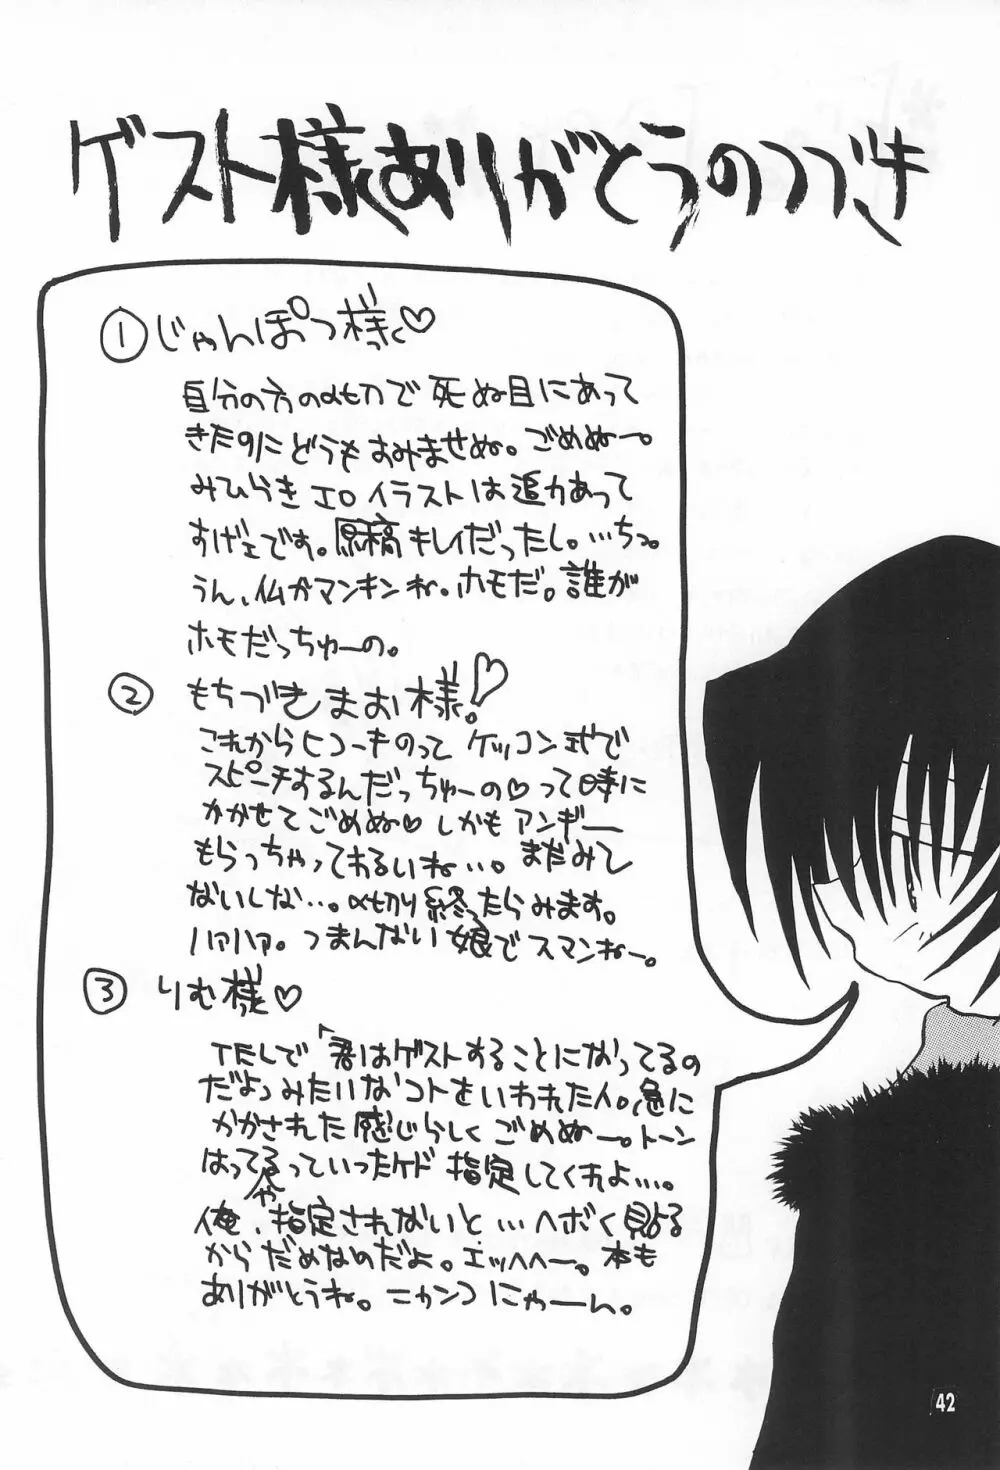 ゲスト様ありがとうのつづき
①じゃんぽつ様♡
自分の方の〆切で死ぬ目にあって
きたのにどうもすみませぬ。ごめぬー。
みひらきエロイラストは迫力あって
すげェです。原稿キレイだったし。…ちっ。
うん、仏がマンキンね。ホモだ。誰が
ホモだっちゅーの。
② もちづきまお様!♡
これからヒコーキのって ケッコン式で
スピーチするんだっちゅーの♡って時に
かかせてごめぬ♡しかもアンギー
もらっちゃってわるいね…。まだみて
ないしな…。〆切り終ったらみます。
ハァハァ。つまんない娘でスマンねー。
③ りむ様♡
TELで「君はゲストすることになってるの
だよっみたいなコトをいわれた人。急に
かかされた感じらしくごめぬー。トーン
はってるっていったケド指定してくれよ…。
や
俺、指定されないと…ヘボく貼る
からだめなのだよ。エッヘヘー。本も
ありがとうね。ニャンコにゃーん。
42